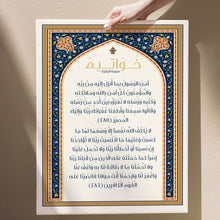 خواتيم
سورة البقرة
آمن الرسول بما أنزل إليه من ربه
والمؤمنون كل آمن بالله وملائكته
وكتبه ورسله لا نفرق بين أحد من رسله
وقالوا سمعنا وأطعنا غفرانك ربنا وإليك
المصير (٢٨٥)
لا يكلف الله نفسا إلا وسعها لها ما
كسبت وعليها ما اكتسبت ربنا لا تؤاخذنا
إن نسينا أو أخطأنا ربنا ولا تحمل علينا
إصرا كما حملته على الذين من قبلنا ربنا
ولا تحملنا ما لا طاقة لنا به واعف عنا
واغفر لنا وارحمنا أنت مولانا فانصرنا على
القوم الكافرين (٢٨٦)